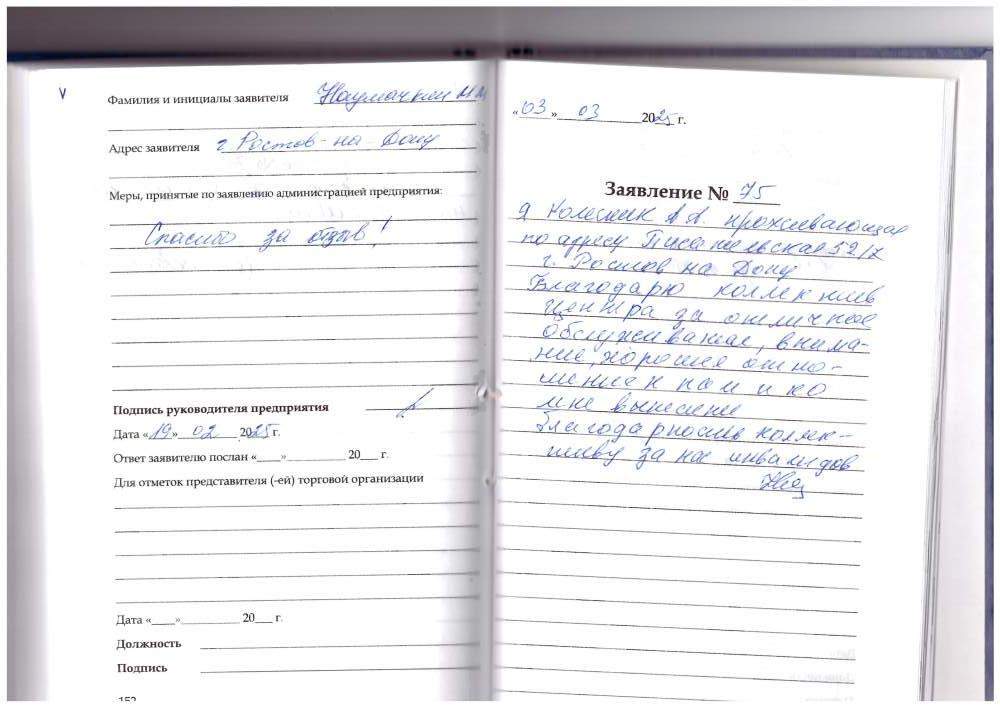 Фамилия и инициалы заявителя Наумочкин М.М
Адрес заявителя г. Ростов-на-Дону
Меры, принятые по заявлению администрацией предприятия:
Спасибо за отзыв!
Подпись руководителя предприятия
Дата «19» 02 2025 г.
Ответ заявителю послан «____»__________ 20___ г.
Для отметок представителя (-ей) торговой организации
Дата «____»__________ 20___ г.
Должность
Подпись
152
«03» 03 2025 г.
Заявление № 75
Я Колесник А А. проживающая
по адресу Писательская 52/7
г. Ростов на Дону
Благодарю коллектив
центра за отличное
обслуживание, внима-
ние, хорошее отно-
шение к нам и ко
мне вынесены
благодарность коллек-
тиву за нас инвалидов